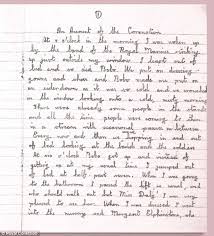 ①
An Account of the Coronation
At 5 o'clock in the morning I was woken up
by the band of the Royal Marines striking
up just outside my window. I leapt out of
bed and so did Bobo. We put on dressing-
gowns and shoes and Bobo made me put on
an eiderdown as it was so cold and we crouched
in the window looking onto a cold, misty morning.
There were already some people in the stands
and all the time people were coming to them
in a stream with occasional pauses in between.
Every now and then we were hopping in and out
of bed looking at the bands and the soldiers.
At six o'clock Bobo got up and instead of
getting up at my usual time I jumped out of
bed at half-past seven. When I was going
to the bathroom I passed the lift as usual, and
who should walk out but Miss Daly! I was very
pleased to see her. When I dressed I went
into the nursery